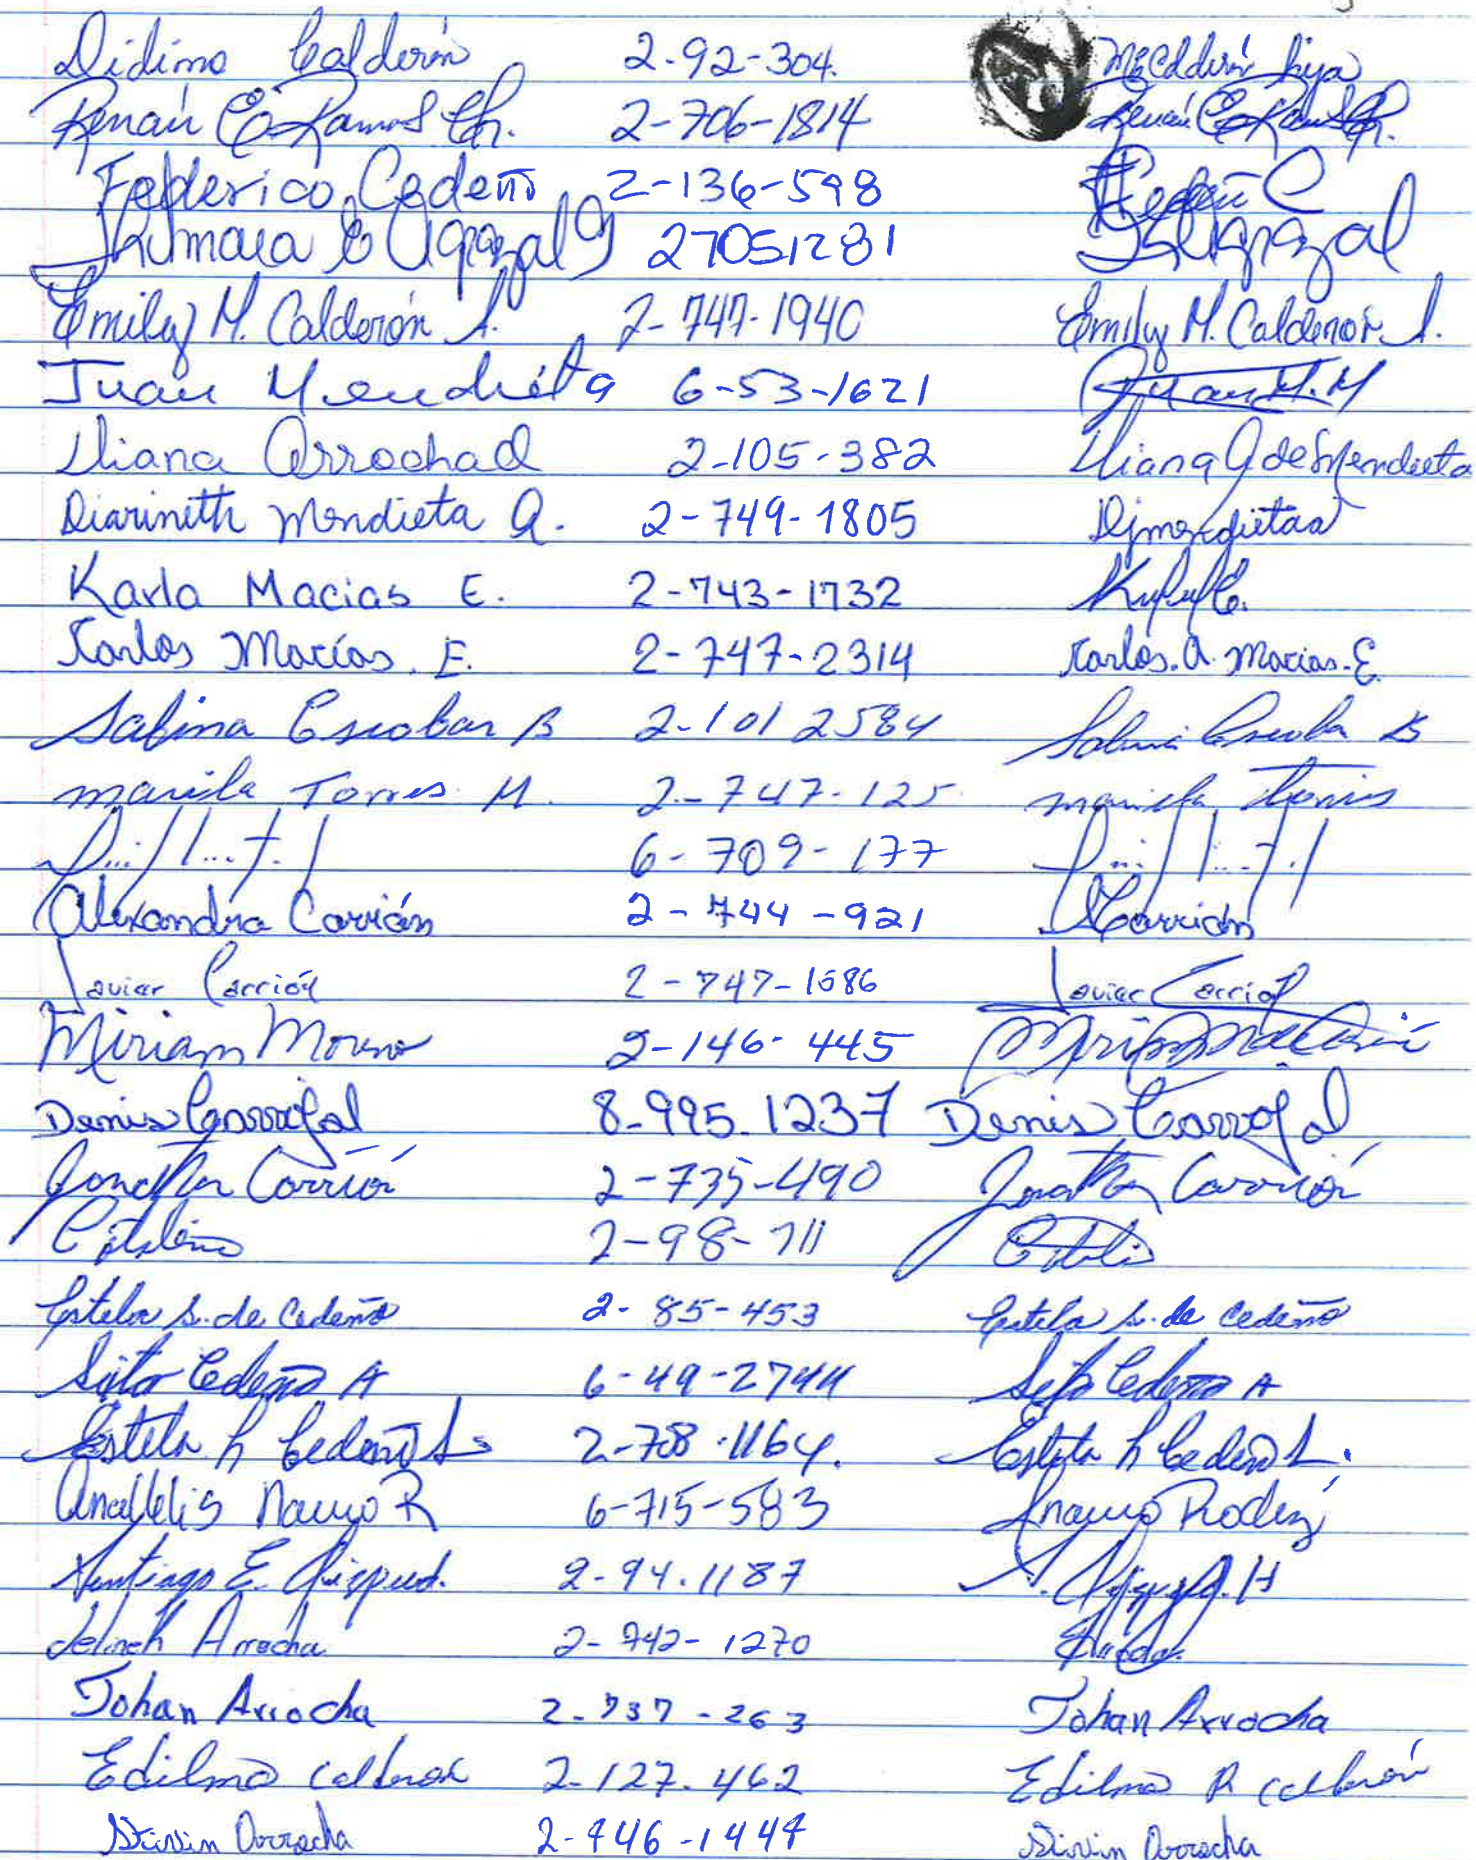 Didimo Calderón 2-92-304. hija
Renaú E. Ramos Ch. 2-706-1814
Federico Cedeño 2-136-598 Cedeñ C
E Ugrazal G 27051281 Ugrazal
Emily M. Calderón A. 2-747-1940 Emily M. Calderón A.
Juan Mendieta 6-53-1621 Juan M. M
Iliana Arrocha d 2-105-382 Iliana A de Mendieta
Diarineth Mendieta A. 2-749-1805 Djmendietaa
Karla Macias E. 2-743-1732
Karlos Macías. E. 2-747-2314 Karlos. A. Macias. E.
Sabina Escobar B 2-101 2584 Sabina Escobar B
mariela Torres M. 2-747-125 mariela Torres
6-709-177
Alexandra Carrión 2-744-921 Acarrión
Javier Carrión 2-747-1586 Javier Carrión
Miriam Moreno 2-146-445
Denis Carvajal 8-995-1237 Denis Carvajal
Jonathan Carrión 2-735-490 Jonathan Carrión
2-98-711
Estela S. de Cedeño 2-85-453 Estela S. de Cedeño
Sixto Cedeño A 6-49-2744 Sixto Cedeño A
Estela h Cedeño S 2-708-1164. Estela h Cedeño S.
Anayelis Navyo R 6-715-583
Santiago E. 2-94-1187
Arrocha 2-742-1270
Johan Arrocha 2-737-263 Johan Arrocha
Edilma Calderón 2-127-462 Edilma R Calderón
Arrocha 2-746-1447 Arrocha